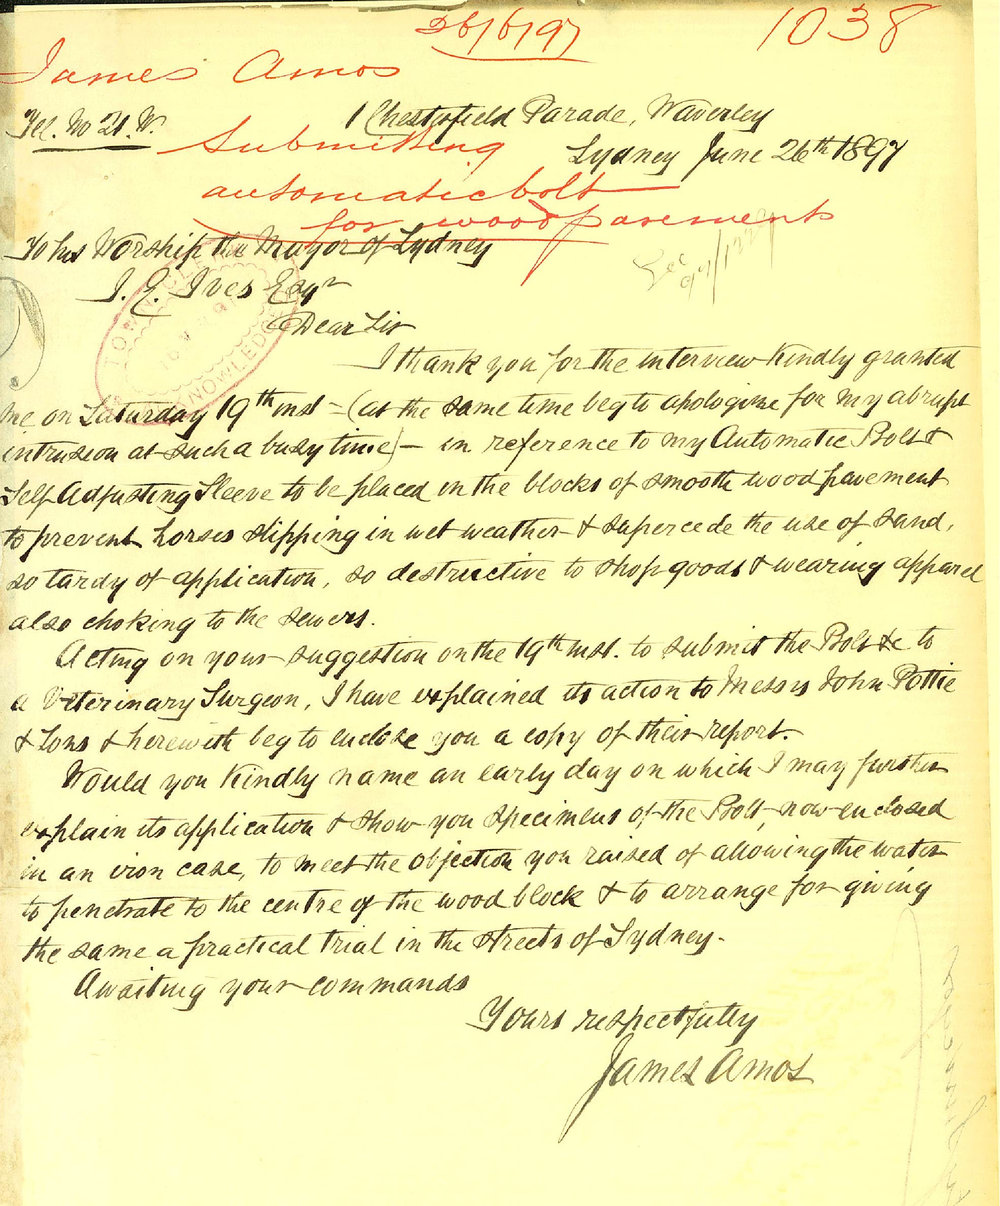 26/6/97
1038
James Amos
Tel. No 21. W.
1 Chesterfield Parade, Waverley
Submitting
Sydney June 26th 1897
automatic bolt
for wood pavements
To his Worship the Mayor of Sydney
See
97/1226
I. E. Ives Esqr
TOWN
ACKNOWLEDGED
Dear Sir
I thank you for the interview kindly granted
me on Saturday 19th inst – (at the same time beg to apologise for my abrupt
intrusion at such a busy time) – in reference to my Automatic Bolt &
Self Adjusting Sleeve to be placed in the blocks of smooth wood pavement
to prevent horses slipping in wet weather & supercede the use of sand,
so tardy of application, so destructive to shop goods & wearing apparel
also choking to the sewers.
Acting on your suggestion on the 19th inst. to submit the Bolt &c to
a Veterinary Surgeon, I have explained its action to Messrs John Pottie
& Sons & herewith beg to enclose you a copy of their report.
Would you kindly name an early day on which I may further
explain its application & show you specimens of the Bolt, now enclosed
in an iron case, to meet the objection you raised of allowing the water
to penetrate to the centre of the wood block & to arrange for giving
the same a practical trial in the streets of Sydney.
Awaiting your commands
Yours respectfully
James Amos